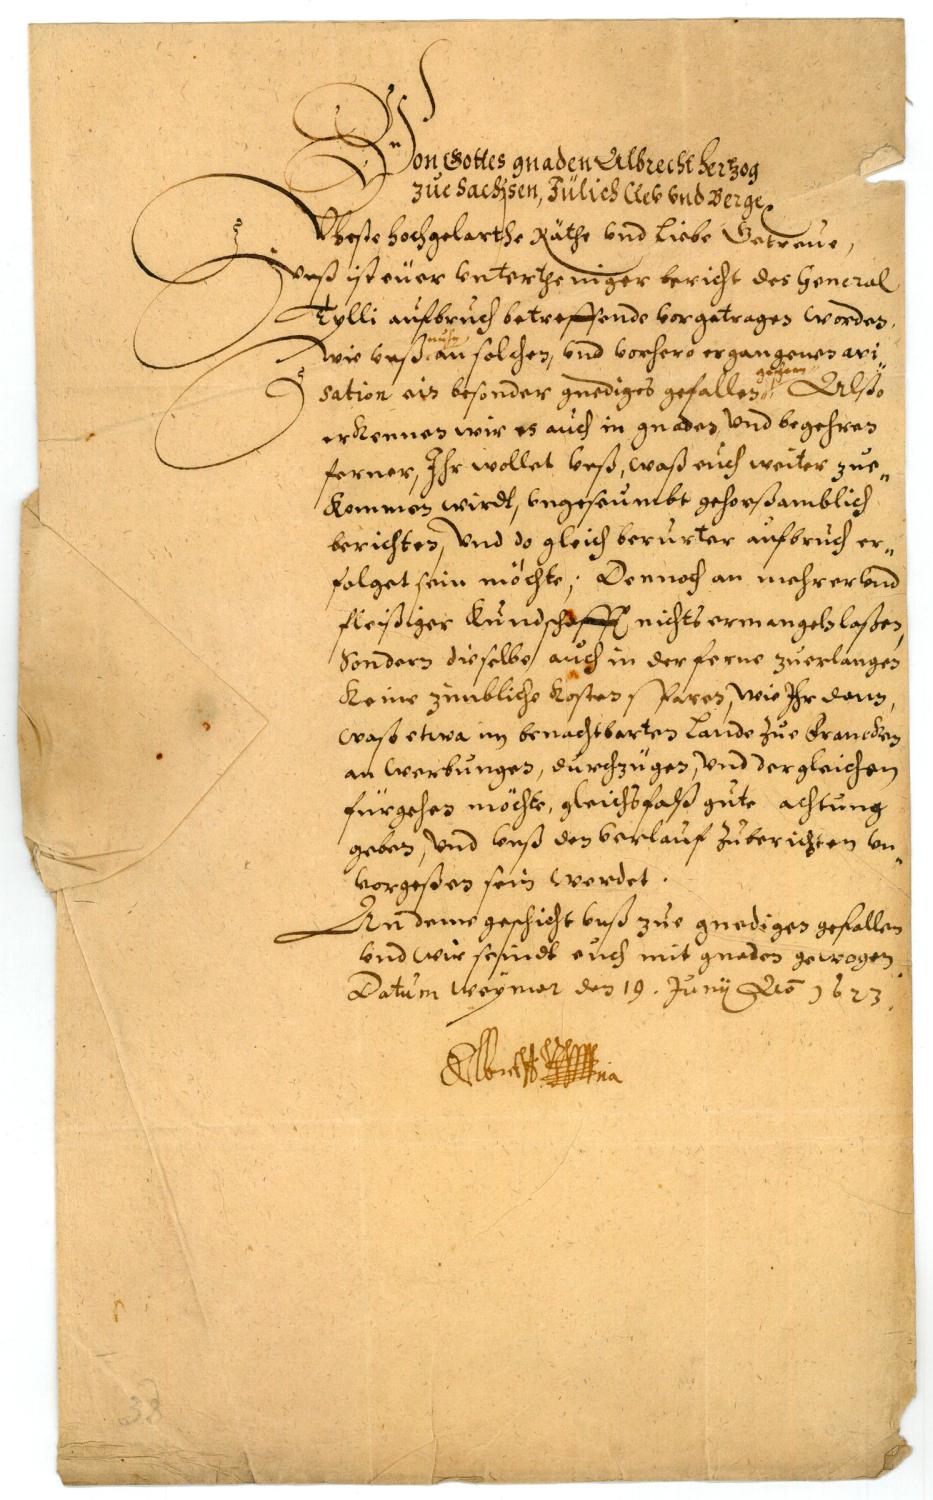 Von Gottes gnaden Albrecht Hertzog
zue Sachsen, Jülich Clev vnd Berge.
Veste hochgelarthe Räthe vnd Liebe Getreue,
vnß ist euer vntertheniger bericht des General
Tylli aufbruch betreffende vorgetragen worden,
nuhn
wie vnß an solchen, vnd vorhero ergangenen avi„
sation ein besonder gnediges gefallen Alßo
erkennen wir es auch in gnaden, vnd begehren
ferner, Ihr wollet vnß, waß euch weiter zue„
kommen wirdt, vngeseumbt gehorßamblich
berichten, vnd do gleich berurter aufbruch er„
folget sein möchte, Dennoch an mehrer vnd
fleißiger Kundschafft nichts ermangeln laßen,
Sondern dieselbe auch in der ferne zuerlangen
keine zimbliche kosten sparen, wie Ihr dann,
waß etwa im benachtbarten Lande zue Francken
an werbungen, durchzügen, vnd dergleichen
fürgehen möchte, gleichsfalß gute achtung
geben, vnd vnß den verlauf zuberichten vn„
vorgeßen sein werdet.
An deme geschicht vnß zue gnedigen gefallen
vnd wir seindt euch mit gnaden gewogen
Datum Weymar den 19. Junij Ao 1623.
Albrecht
38